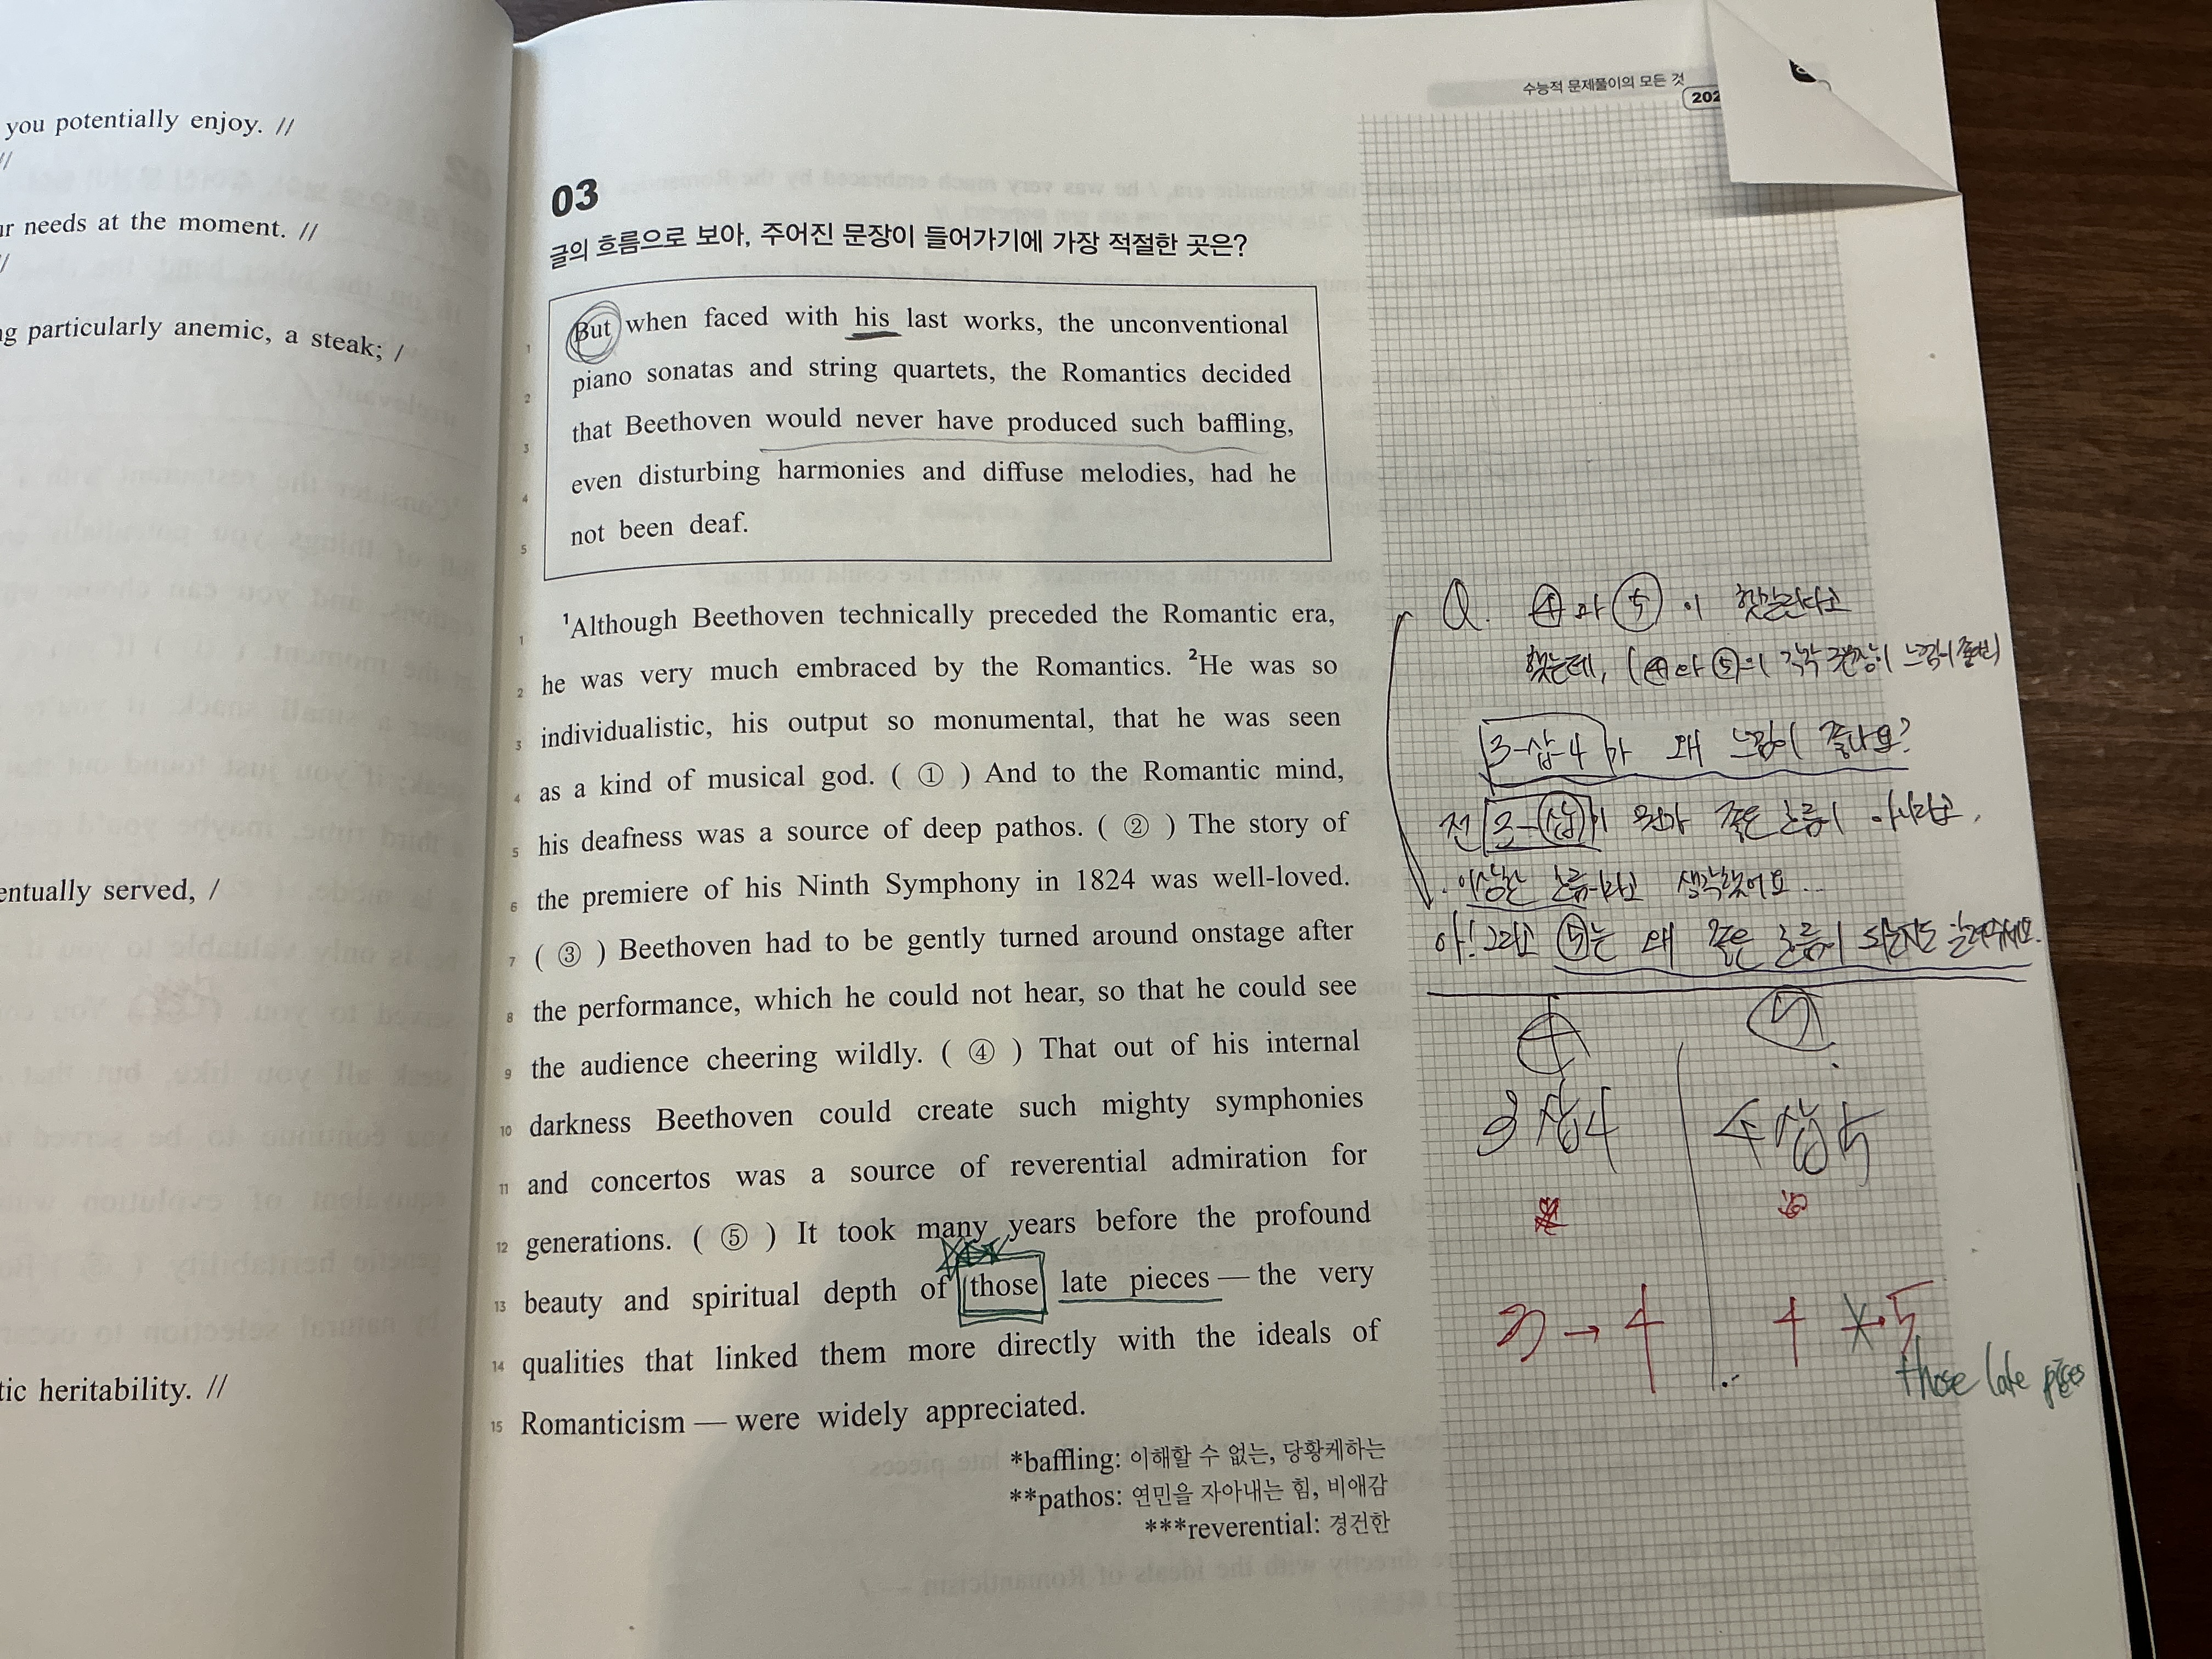 you potentially enjoy. //
//
ur needs at the moment. //
//
ng particularly anemic, a steak; /
entually served, /
tic heritability. //
수능적 문제풀이의 모든 것
202
03
글의 흐름으로 보아, 주어진 문장이 들어가기에 가장 적절한 곳은?
1 But when faced with his last works, the unconventional
2 piano sonatas and string quartets, the Romantics decided
3 that Beethoven would never have produced such baffling,
4 even disturbing harmonies and diffuse melodies, had he
5 not been deaf.
1 ¹Although Beethoven technically preceded the Romantic era,
2 he was very much embraced by the Romantics. ²He was so
3 individualistic, his output so monumental, that he was seen
4 as a kind of musical god. ( ① ) And to the Romantic mind,
5 his deafness was a source of deep pathos. ( ② ) The story of
6 the premiere of his Ninth Symphony in 1824 was well-loved.
7 ( ③ ) Beethoven had to be gently turned around onstage after
8 the performance, which he could not hear, so that he could see
9 the audience cheering wildly. ( ④ ) That out of his internal
10 darkness Beethoven could create such mighty symphonies
11 and concertos was a source of reverential admiration for
12 generations. ( ⑤ ) It took many years before the profound
13 beauty and spiritual depth of those late pieces — the very
14 qualities that linked them more directly with the ideals of
15 Romanticism — were widely appreciated.
*baffling: 이해할 수 없는, 당황케하는
**pathos: 연민을 자아내는 힘, 비애감
***reverential: 경건한
Q. ④와 ⑤이 헷갈린다고
했는데, (④와 ⑤의 각각 문장이 느낌이 좋대)
3-삽-4가 왜 느낌이 좋나요?
전 3-삽이 뭔가 좋은 흐름이 아니라고,
이상한 흐름이라고 생각했어요...
아! 그리고 ⑤는 왜 좋은 흐름이 되는지도 알려주세요.
④ ⑤
3 삽 4 4 삽 5
3 → 4 4 5
those late pieces